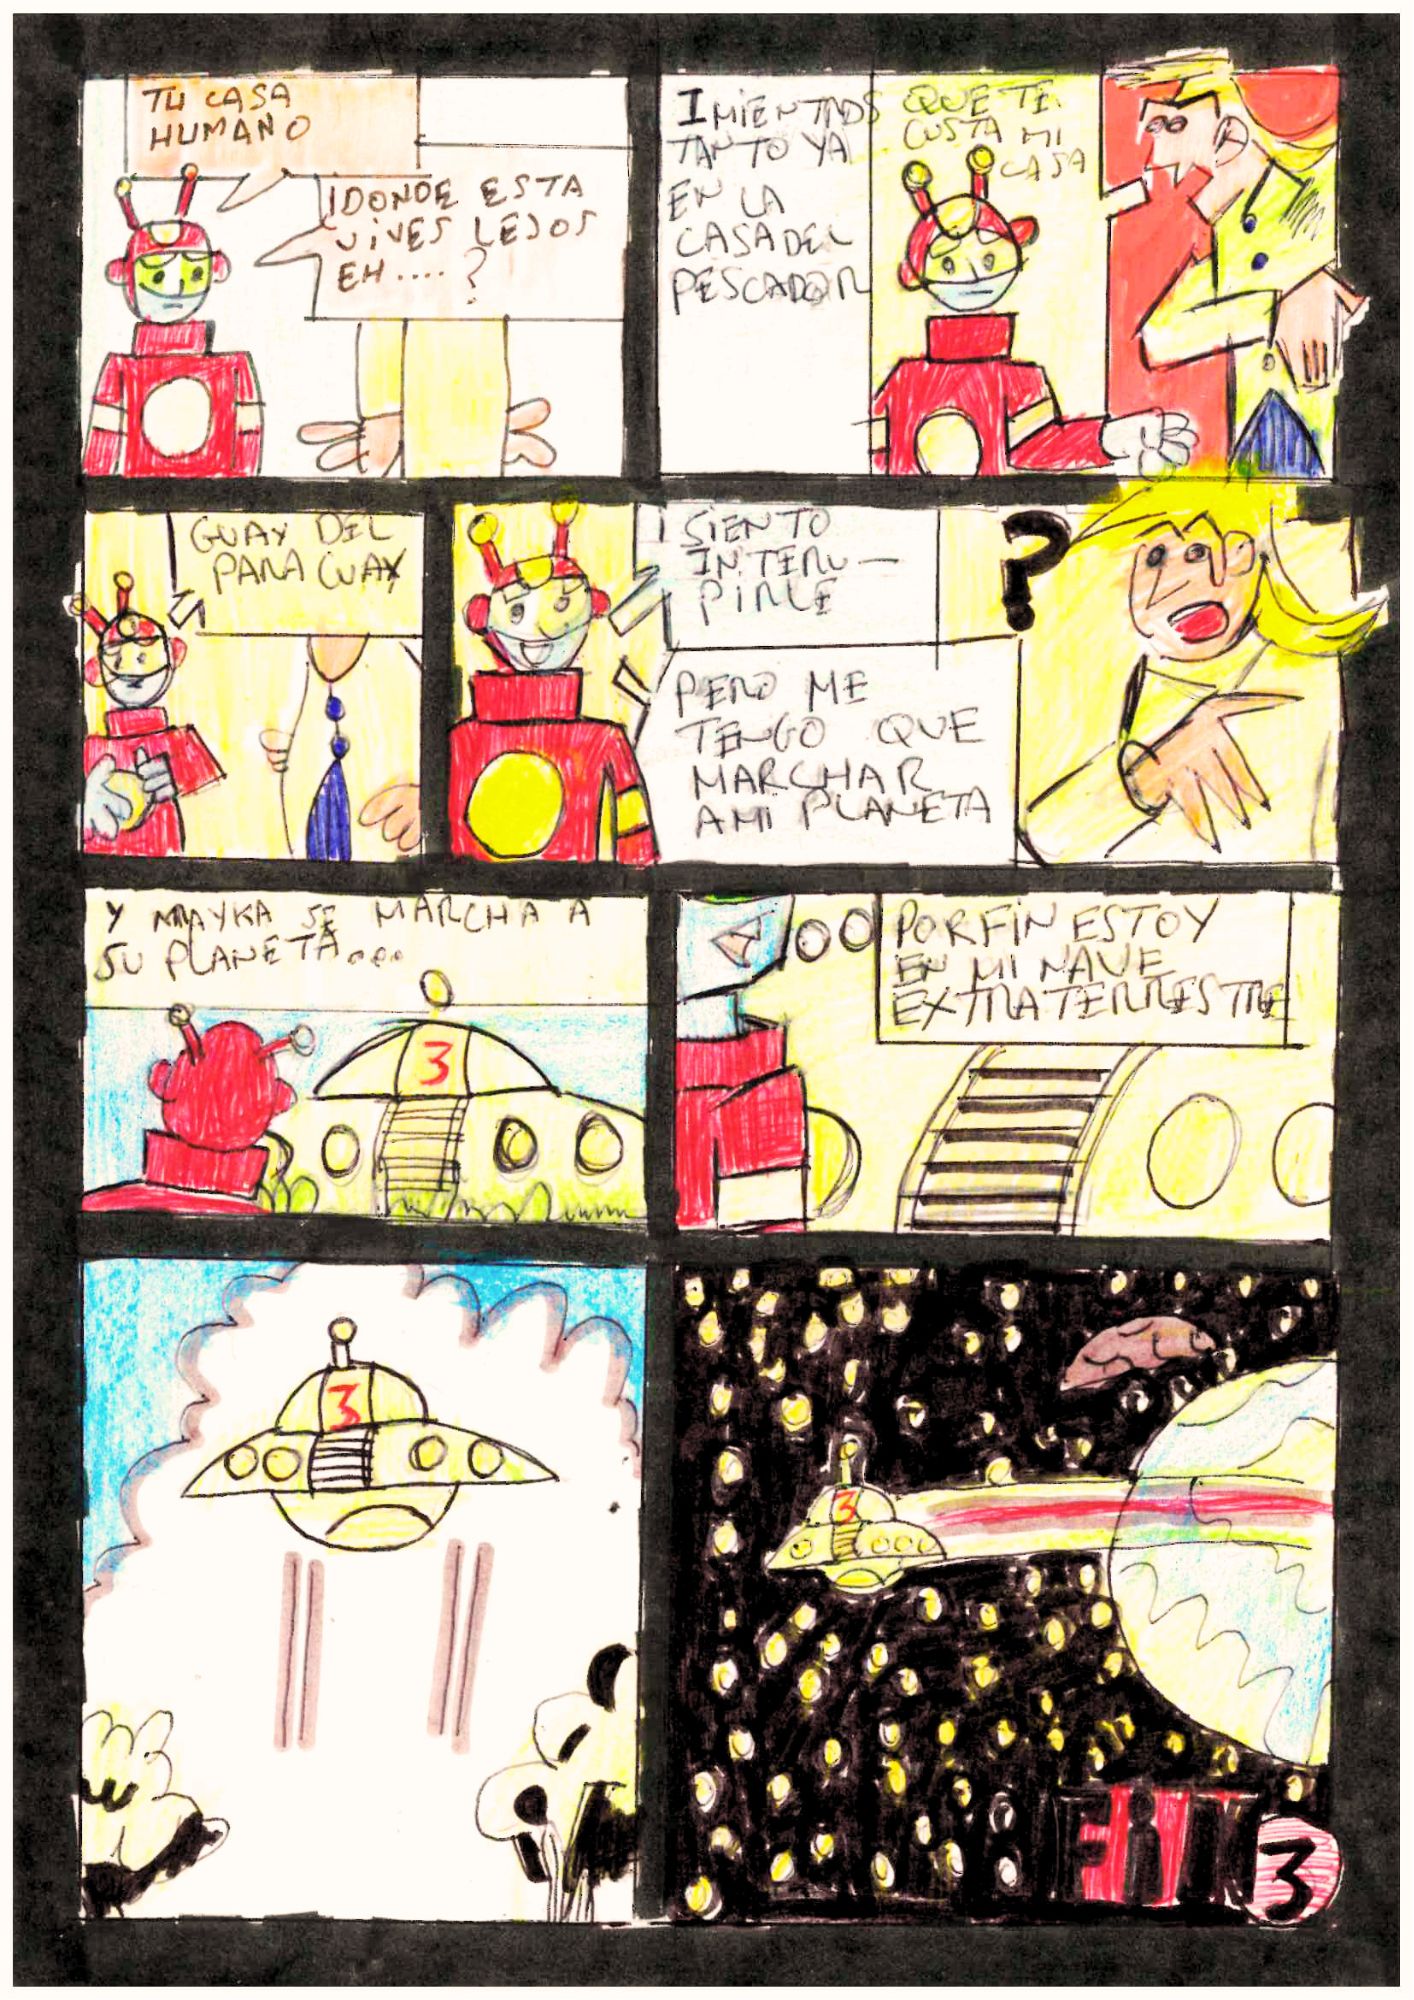 TU CASA
HUMANO
¡DONDE ESTA
VIVES LEJOS
EH....?
I MIENTRAS
TANTO YA
EN LA
CASA DEL
PESCADOR
QUE TE
GUSTA MI
CASA
GUAY DEL
PARAGUAY
SIENTO
INTERU-
PIRLE
PERO ME
TENGO QUE
MARCHAR
A MI PLANETA
?
Y MAYKA SE MARCHA A
SU PLANETA...
3
POR FIN ESTOY
EN MI NAVE
EXTRATERRESTRE
3
3
FIN
3